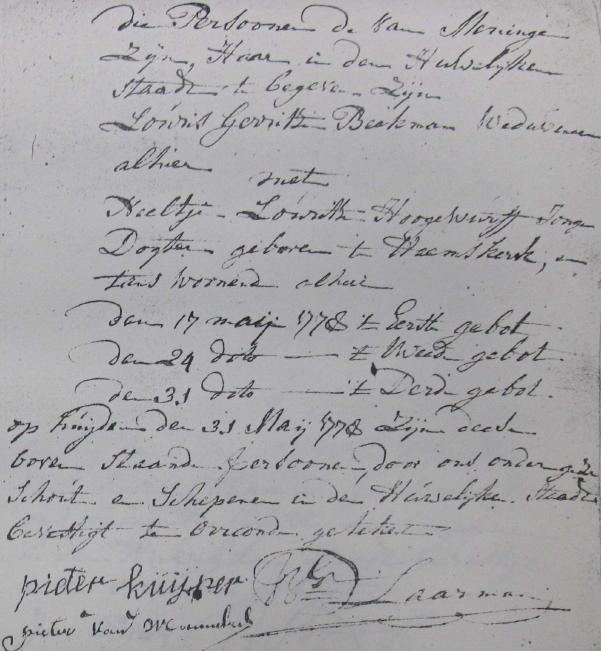 die Persoonen de van Meninge
Zijn, Haar in den Huwelijken
Staadt te begeven Zijn
Louris Gerritse Beekman Weduwenaer
alhier
met
Neeltje Louritse Hoogewerff Jonge
Dogter geboren te Heemskerk, en
tans wonend alhier
den 17 maij 1778 't Eerste gebot
den 24 dito — 't tweede gebot
den 31 dito — 't Derde gebot.
op huijden den 31 Maij 1778 Zijn deese
boven staande persoonen, door ons onder
Schout en Schepenen in de Huwelijke Staadt
bevestigt te oirconde getekent
pieter kuijper Laarman
pieter van